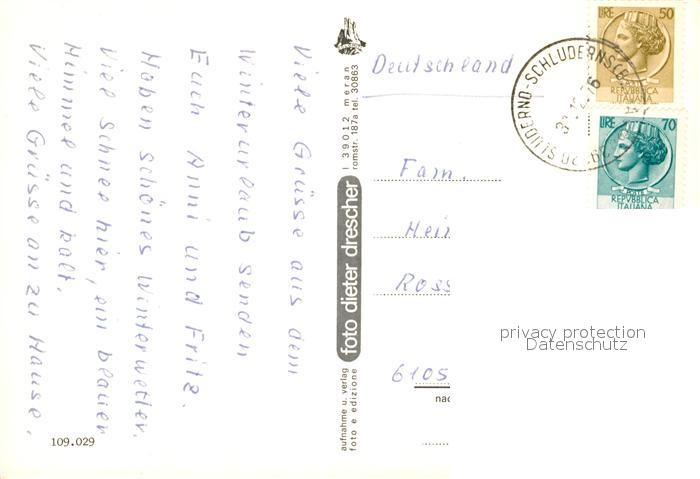 Viele Grüsse aus dem
Winterurlaub senden
Euch Anni und Fritz.
Haben schönes Winterwetter.
Viel Schnee hier, ein blauer
Himmel und kalt.
Viele Grüsse an zu Hause.
109.029
foto dieter drescher
I 39012 meran
romstr. 187a tel. 30863
aufnahme u. verlag
foto e edizione
Deutschland
Fam.
Hei
Ross
6105
nac
SLUDERNO-SCHLUDERNS
LIRE 50
POSTE
REPVBBLICA
ITALIANA
LIRE 70
POSTE
REPVBBLICA
ITALIANA
privacy protection
Datenschutz